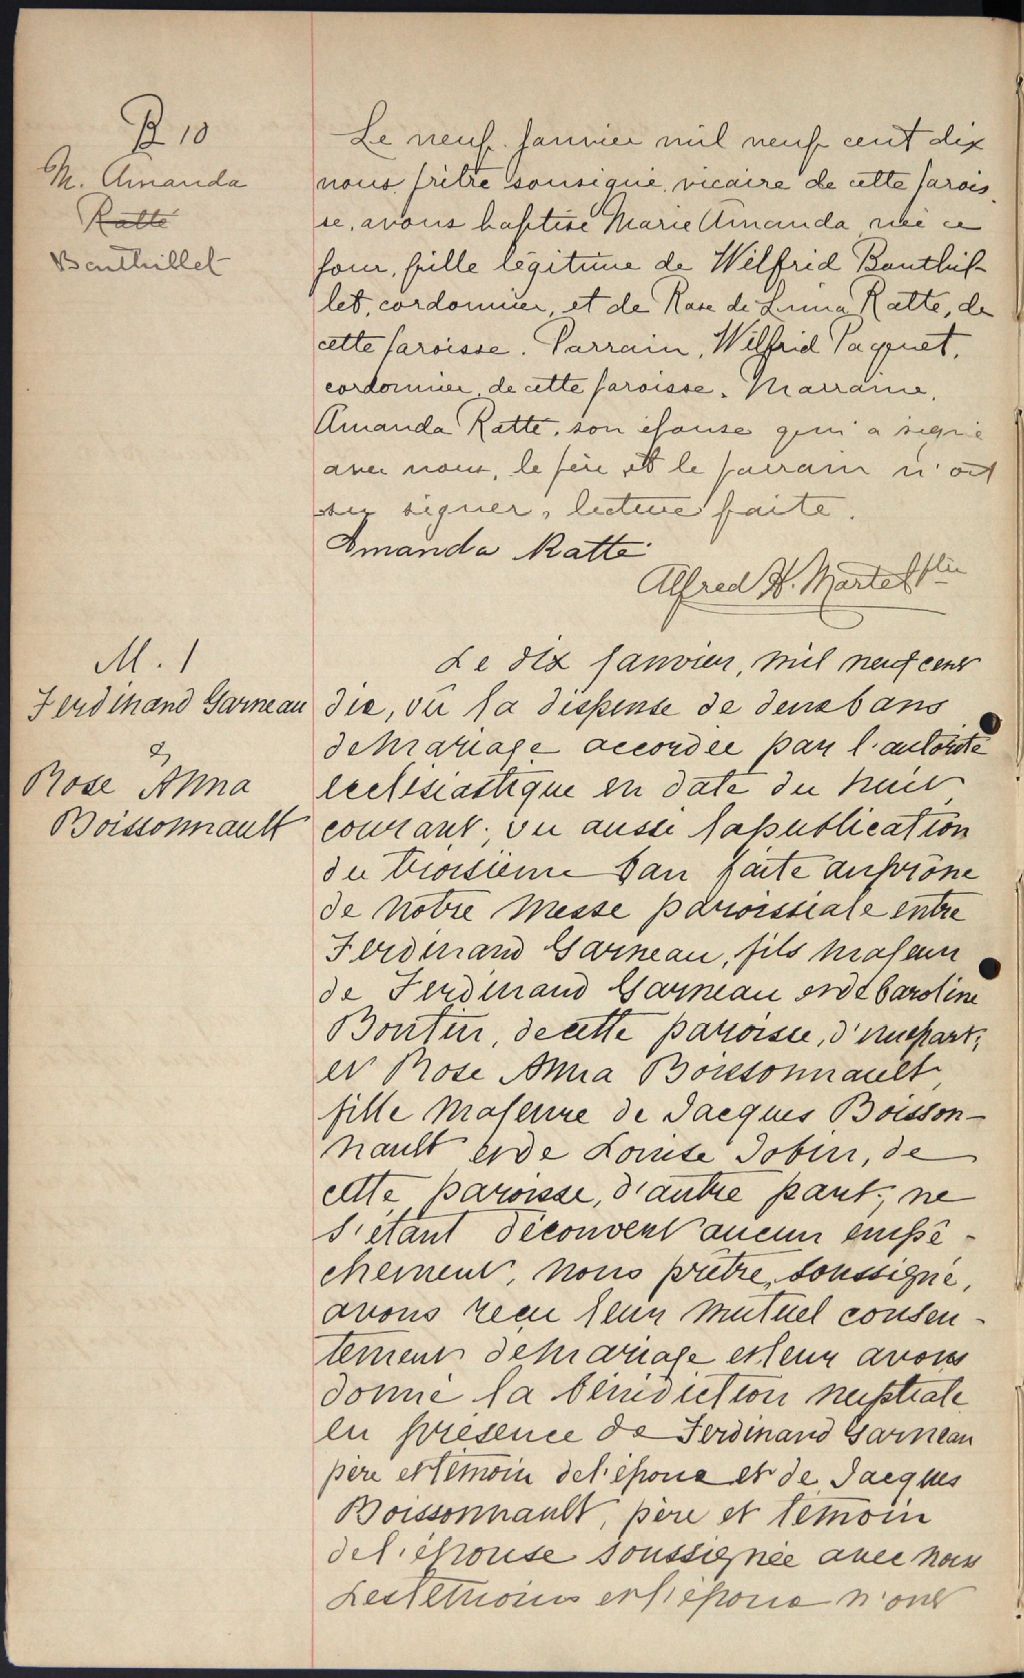 B 10
M. Amanda
Ratté
Bouthillet
Le neuf janvier mil neuf cent dix
nous prêtre soussigné, vicaire de cette parois
se, avons baptisé Marie Amanda, née ce
jour, fille légitime de Wilfrid Bouthil-
let, cordonnier, et de Rose de Lima Ratté, de
cette paroisse. Parrain, Wilfrid Paquet,
cordonnier, de cette paroisse. Marraine,
Amanda Ratté, son épouse qui a signé
avec nous, le père et le parrain n'ont
su signer, lecture faite.
Amanda Ratté
Alfred H. Martel ptre
M. 1
Ferdinand Garneau
&
Rose Anna
Boissonnault
Le dix janvier, mil neuf cent
dix, vu la dispense de deux bans
de mariage accordée par l'autorité
ecclésiastique en date du huit
courant; vu aussi la publication
du troisième ban faite au prône
de notre messe paroissiale entre
Ferdinand Garneau, fils majeur
de Ferdinand Garneau et de Caroline
Boutin, de cette paroisse, d'une part;
et Rose Anna Boissonnault,
fille majeure de Jacques Boisson-
nault et de Louise Jobin, de
cette paroisse, d'autre part; ne
s'étant découvert aucun empê-
chement, nous prêtre, soussigné,
avons reçu leur mutuel consen-
tement de mariage et leur avons
donné la bénédiction nuptiale
en présence de Ferdinand Garneau
père et témoin de l'époux et de Jacques
Boissonnault, père et témoin
de l'épouse soussignée avec nous
Les témoins et l'époux n'ont